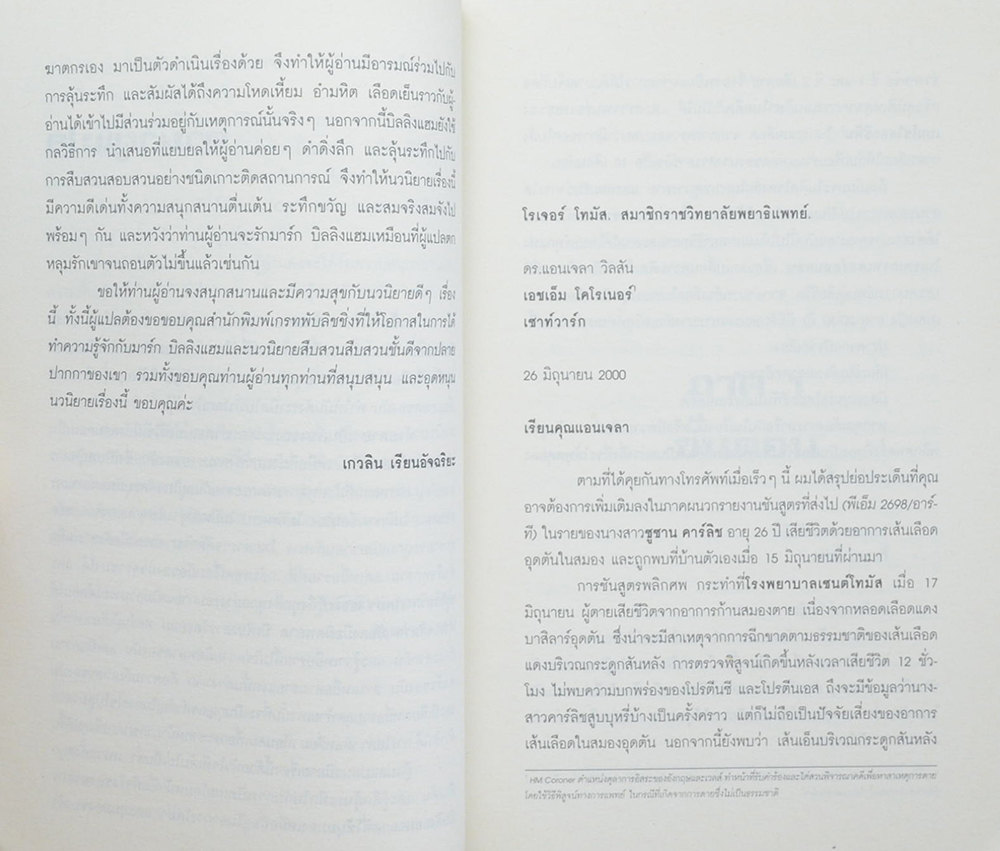 ฆาตกรเอง มาเป็นตัวดำเนินเรื่องด้วย จึงทำให้ผู้อ่านมีอารมณ์ร่วมไปกับ
การลุ้นระทึก และสัมผัสได้ถึงความโหดเหี้ยม อำมหิต เลือดเย็นราวกับผู้-
อ่านได้เข้าไปมีส่วนร่วมอยู่กับเหตุการณ์นั้นจริงๆ นอกจากนี้บิลลิงแฮมยังใช้
กลวิธีการ นำเสนอที่แยบยลให้ผู้อ่านค่อยๆ ดำดิ่งลึก และลุ้นระทึกไปกับ
การสืบสวนสอบสวนอย่างชนิดเกาะติดสถานการณ์ จึงทำให้นวนิยายเรื่องนี้
มีความดีเด่นทั้งความสนุกสนานตื่นเต้น ระทึกขวัญ และสมจริงสมจังไป
พร้อมๆ กัน และหวังว่าท่านผู้อ่านจะรักมาร์ก บิลลิงแฮมเหมือนที่ผู้แปลตก
หลุมรักเขาจนถอนตัวไม่ขึ้นแล้วเช่นกัน
ขอให้ท่านผู้อ่านจงสนุกสนานและมีความสุขกับนวนิยายดีๆ เรื่อง
นี้ ทั้งนี้ผู้แปลต้องขอขอบคุณสำนักพิมพ์เกรทพับลิชชิ่งที่ให้โอกาสในการได้
ทำความรู้จักกับมาร์ก บิลลิงแฮมและนวนิยายสืบสวนสืบสวนชั้นดีจากปลาย
ปากกาของเขา รวมทั้งขอบคุณท่านผู้อ่านทุกท่านที่สนุบสนุน และอุดหนุน
นวนิยายเรื่องนี้ ขอบคุณค่ะ
เกวลิน เรียนอัจฉริยะ
โรเจอร์ โทมัส. สมาชิกราชวิทยาลัยพยาธิแพทย์.
ดร.แอนเจลา วิลสัน
เอชเอ็ม โคโรเนอร์*
เซาท์วาร์ก
26 มิถุนายน 2000
เรียนคุณแอนเจลา
ตามที่ได้คุยกันทางโทรศัพท์เมื่อเร็วๆ นี้ ผมได้สรุปย่อประเด็นที่คุณ
อาจต้องการเพิ่มเติมลงในภาคผนวกรายงานชันสูตรที่ส่งไป (พีเอ็ม 2698/อาร์-
ที) ในรายของนางสาวซูซาน คาร์ลิช อายุ 26 ปี เสียชีวิตด้วยอาการเส้นเลือด
อุดตันในสมอง และถูกพบที่บ้านตัวเองเมื่อ 15 มิถุนายนที่ผ่านมา
การชันสูตรพลิกศพ กระทำที่โรงพยาบาลเซนต์โทมัส เมื่อ 17
มิถุนายน ผู้ตายเสียชีวิตจากอาการก้านสมองตาย เนื่องจากหลอดเลือดแดง
บาสิลาร์อุดตัน ซึ่งน่าจะมีสาเหตุจากการฉีกขาดตามธรรมชาติของเส้นเลือด
แดงบริเวณกระดูกสันหลัง การตรวจพิสูจน์เกิดขึ้นหลังเวลาเสียชีวิต 12 ชั่ว-
โมง ไม่พบความบกพร่องของโปรตีนซี และโปรตีนเอส ถึงจะมีข้อมูลว่านาง-
สาวคาร์ลิชสูบบุหรี่บ้างเป็นครั้งคราว แต่ก็ไม่ถือเป็นปัจจัยเสี่ยงของอาการ
เส้นเลือดในสมองอุดตัน นอกจากนี้ยังพบว่า เส้นเอ็นบริเวณกระดูกสันหลัง
* HM Coroner ตำแหน่งตุลาการอิสระของอังกฤษและเวลส์ ทำหน้าที่รับคำร้องและไต่สวนพิจารณาคดีเพื่อหาสาเหตุการตาย
โดยใช้วิธีพิสูจน์ทางการแพทย์ ในกรณีที่เกิดจากการตายซึ่งไม่เป็นธรรมชาติ